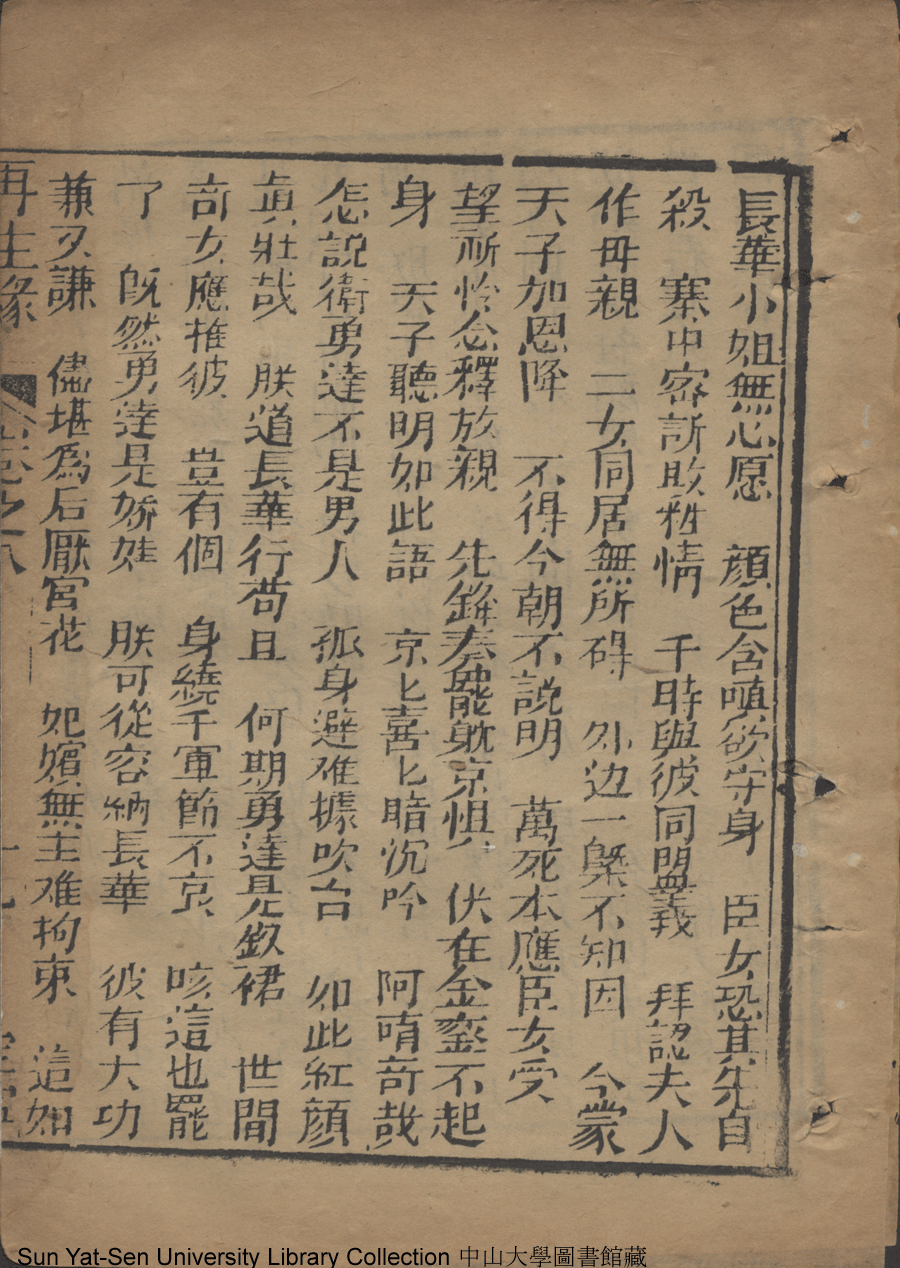 長華小姐無心愿　顏色含嗔欲守身　臣女恐其先自
殺　寨中密訴敗牲情　千時與彼同盟義　拜認夫人
作母親　二女同居無所碍　外边一槩不知因　今蒙
天子加恩降　不得今朝不説明　萬死本應臣女受
望祈怜念釋放親　先鋒奏罷躭京惧　伏在金鑾不起
身　天子聽明如此語　京匕喜匕暗沉吟　阿唷竒哉
怎説衛勇達不是男人　孤身避难據吹台　如此紅顏
眞壯哉　朕道長華行苟且　何期勇達是釵裙　世間
竒女應推彼　豈有個　身繞千軍節不哀　咳這也罷
了　既然勇達是娇娃　朕可從容納長華　彼有大功
兼又謙　儘堪爲后厭宮花　妃嬪無主难拘束　這如
再生緣　卷之八
Sun Yat-Sen University Library Collection 中山大學圖書館藏